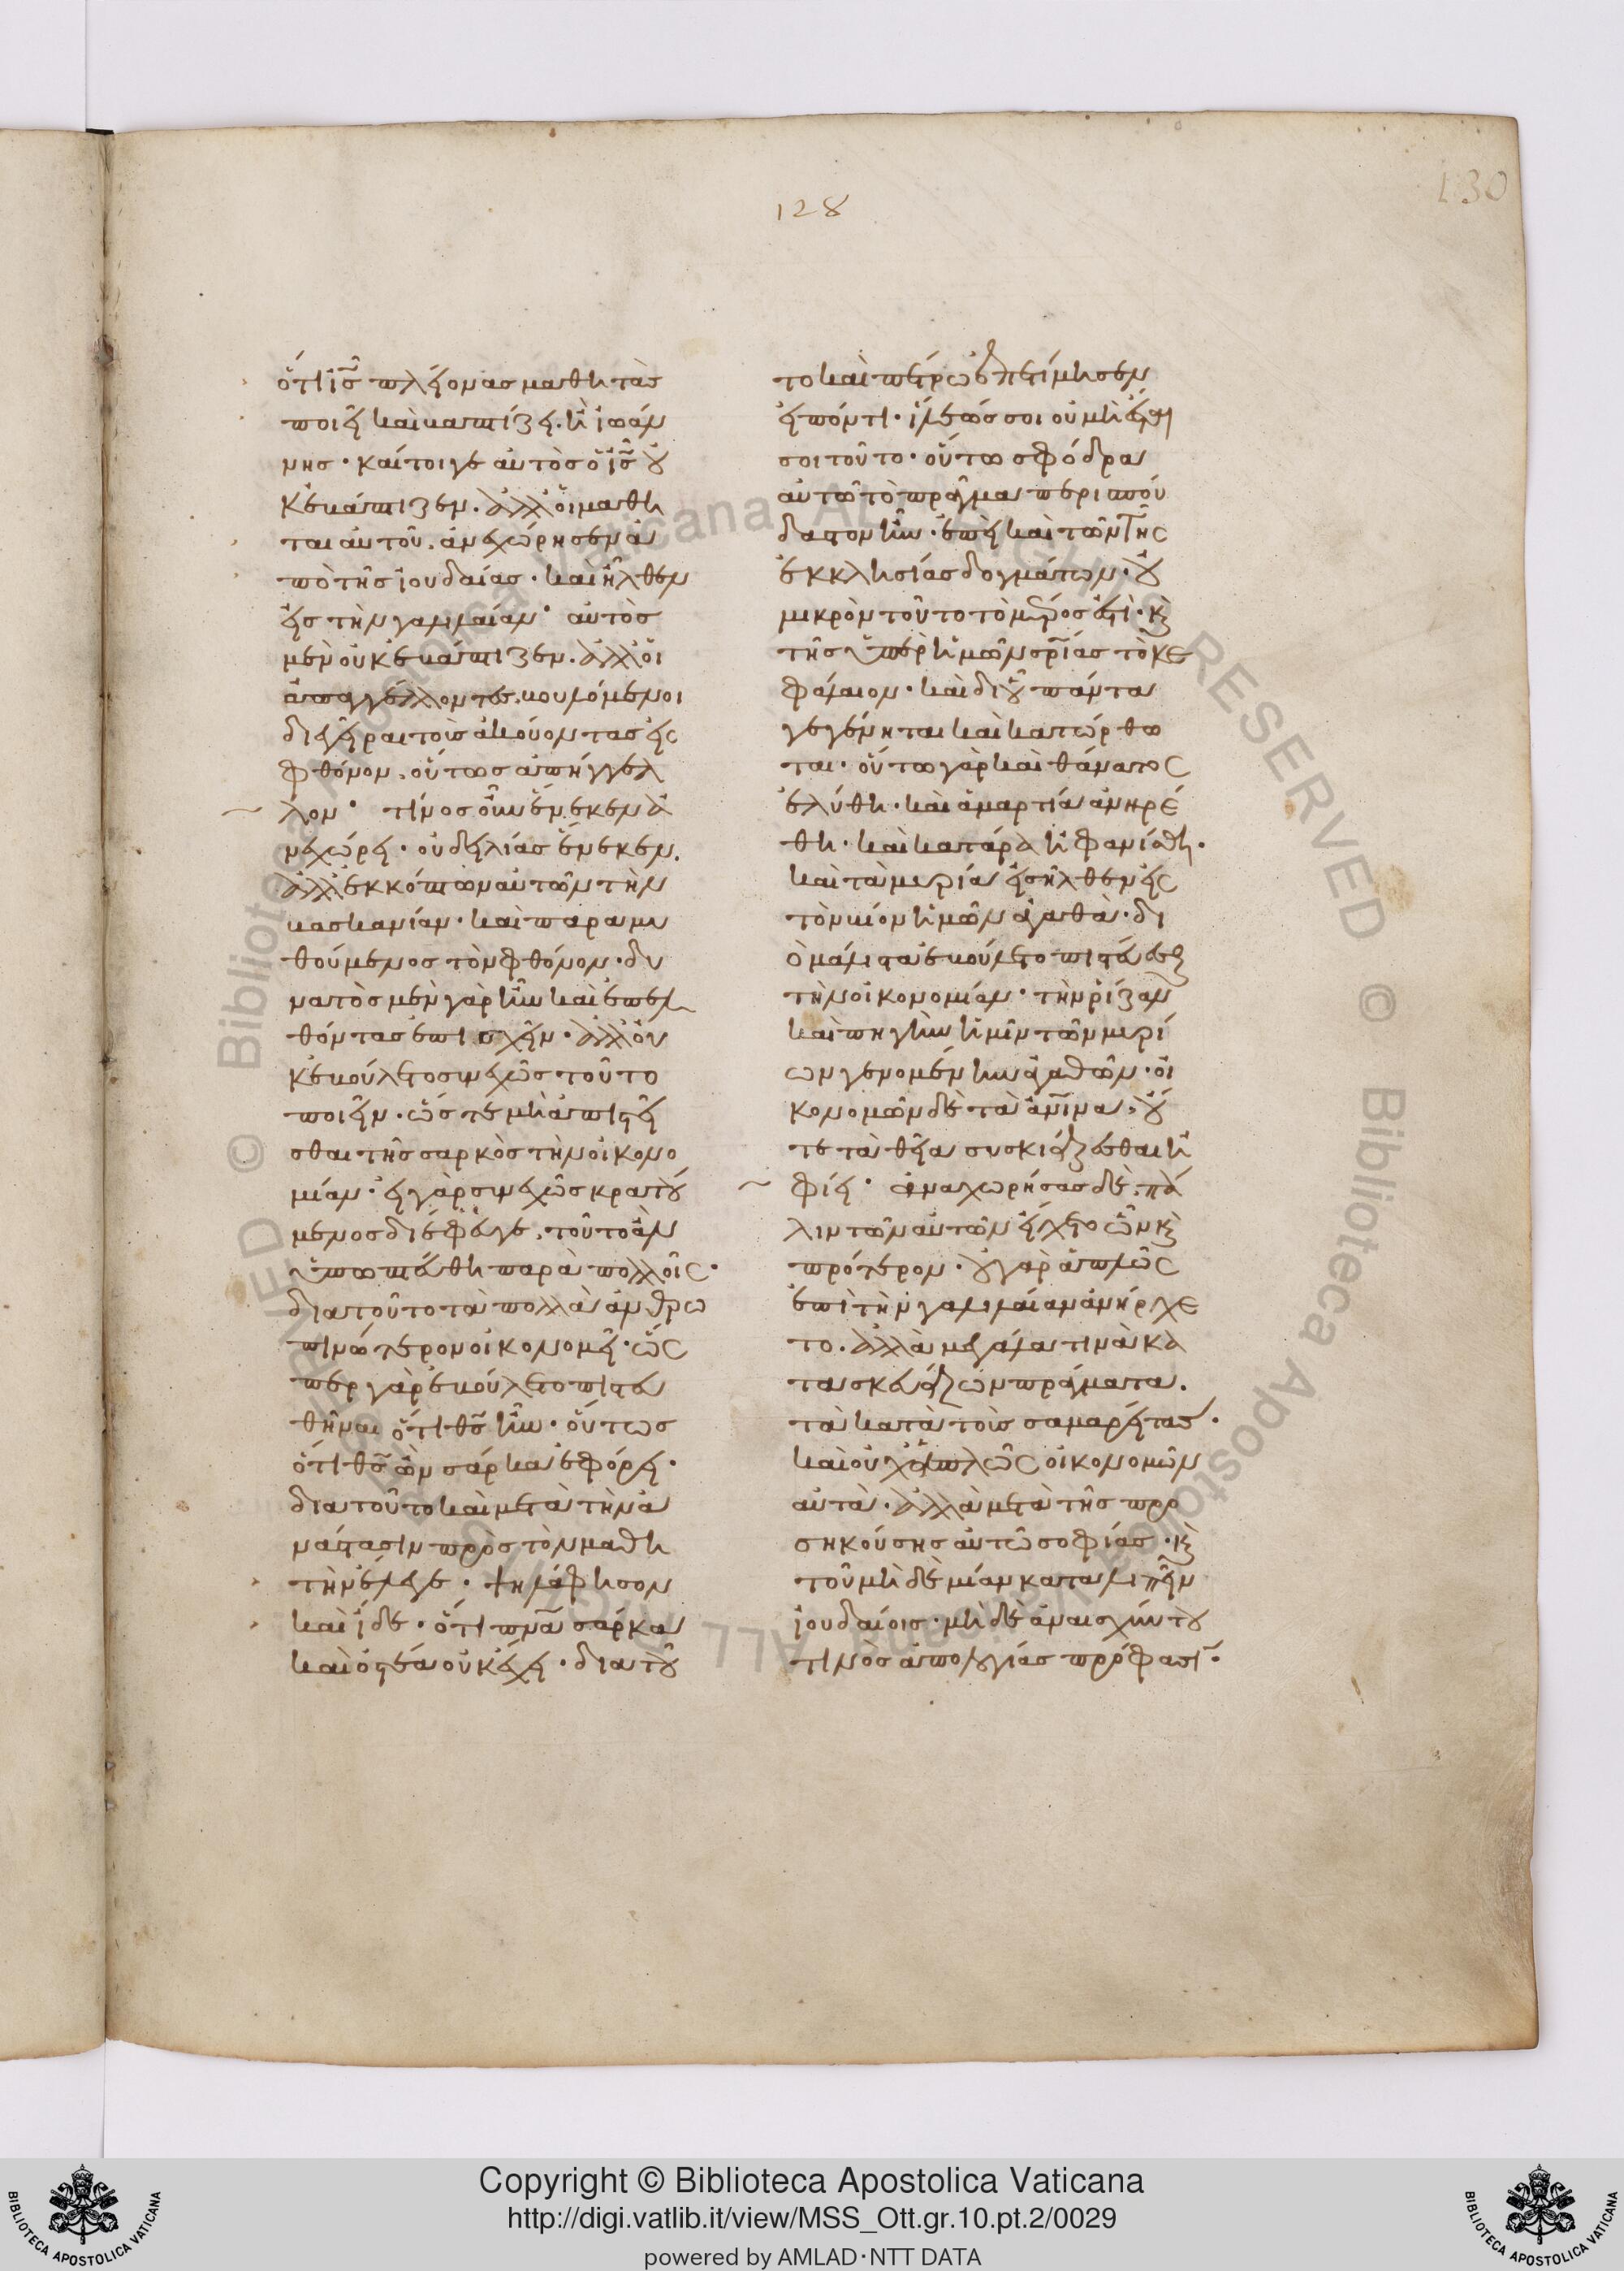 130
128
ὅτι ἰς̅ πλείονας μαθητὰς
ποιεῖ καὶ βαπτίζει· ἢ ἰωάν
νησ· καίτοιγε αὐτὸσ ὁ ἰς̅ οὐ
κ ἐβάπτιζεν· ἀλλ' οἱ μαθη
ται αὐτοῦ· ἀνεχώρησεν ἀ
πὸ τῆσ ἰουδαίας· καὶ ἦλθεν
εἰς τὴν γαλιλαίαν· αὐτὸσ
μὲν οὐκ ἐβάπτιζεν· ἀλλ' οἱ
ἀπαγγέλλοντες βουλόμενοι
διεγεῖραι τοὺς ἀκούοντας εἰς
φθόνον, οὕτως ἀπήγγελ
λον· τίνος οὖν ἕνεκεν ἀ
νεχώρει· οὐ δειλίας ἕνεκεν,
ἀλλ' ἐκκόπτων αὐτῶν τὴν
βασκανίαν· καὶ παραμυ
θούμενος τὸν φθόνον· δυ
νατὸς μὲν γὰρ ἦν καὶ ἐπελ
θόντας ἐπισχεῖν· ἀλλ' οὐ
κ ἐβούλετο συνεχῶς τοῦτο
ποιεῖν· ὥστε μὴ ἀπιστεῖ
σθαι τῆς σαρκὸς τὴν οἰκονο
μίαν· εἰ γὰρ συνεχῶς κρατού
μενος διέφευγε, τοῦτο ἂν
ὑπωπτεύθη παρὰ πολλοῖς·
διατοῦτο τὰ πολλὰ ἀνθρω
πινώτερον οἰκονομεῖ· ὥς
περ γὰρ ἐβούλετο πιστευ
θῆναι ὅτι θς̅ ἦν· οὕτως
ὅτι θς̅ ὢν σάρκα ἐφόρει·
διατοῦτο καὶ μετὰ τὴν ἀ
νάστασιν πρὸς τὸν μαθη
τὴν ἔλεγε· ψηλάφησον
καὶ ἴδε· ὅτι πνα̅ σάρκα
καὶ ὀστέα οὐκ ἔχει· διατοῦ
το καὶ πέτρω ἐπετίμησεν
εἰπόντι· ἵλεώς σοι οὐ μὴ ἔσται
σοι τοῦτο· οὕτω σφόδρα
αὐτῶ τὸ πρᾶγμα περισπού
δαστον ἦν· ἐπεὶ καὶ τῶν τῆς
ἐκκλησίας δογμάτων· οὐ
μικρὸν τοῦτο τὸ μέρος ἐστὶ· κ
τῆς ὑπὲρ ἡμῶν σρ̅ίας τὸ κε
φάλαιον· καὶ δι' οὗ πάντα
γεγένηται καὶ κατώρθω
ται· οὕτω γὰρ καὶ θάνατος
ἐλύθη· καὶ ἁμαρτία ἀνηρέ
θη· καὶ κατάρα ἠφανίσθη·
καὶ τὰ μυρία εἰσῆλθεν εἰς
τὸν βίον ἡμῶν ἀγαθὰ· δι
ὃ μάλιστα ἐβούλετο πιστεύεσθαι
τὴν οἰκονομίαν· τὴν ῥίζαν
καὶ πηγὴν ἡμῖν τῶν μυρί
ων γενομένην ἀγαθῶν· οἰ
κονομῶν δὲ τὰ ἀν̅ινα· οὔ
τε τὰ θεῖα συσκιάζεσθαι ἠ
φίει· ἀναχωρήσας δὲ πά
λιν τῶν αὐτῶν εἴχετο ὧν κ
πρότερον· οὐ γὰρ ἁπλῶς
ἐπὶ τὴν γαλιλαίαν ἀνήρχε
το· ἀλλὰ μεγάλα τινὰ κα
τασκευάζων πράγματα.
τὰ κατὰ τοὺς σαμαρείτας·
καὶ οὐχ ἁπλῶς οἰκονομῶν
αὐτὰ· ἀλλὰ μετὰ τῆς προ
σηκούσης αὐτῶ σοφίας· κ
τοῦ μὴδὲ μίαν καταλιπεῖν
ἰουδαίοις· μὴδὲ ἀναισχύντου
τινὸς ἀπολογίας πρόφασι̅·
Copyright © Biblioteca Apostolica Vaticana
http://digi.vatlib.it/view/MSS_Ott.gr.10.pt.2/0029
powered by AMLAD·NTT DATA